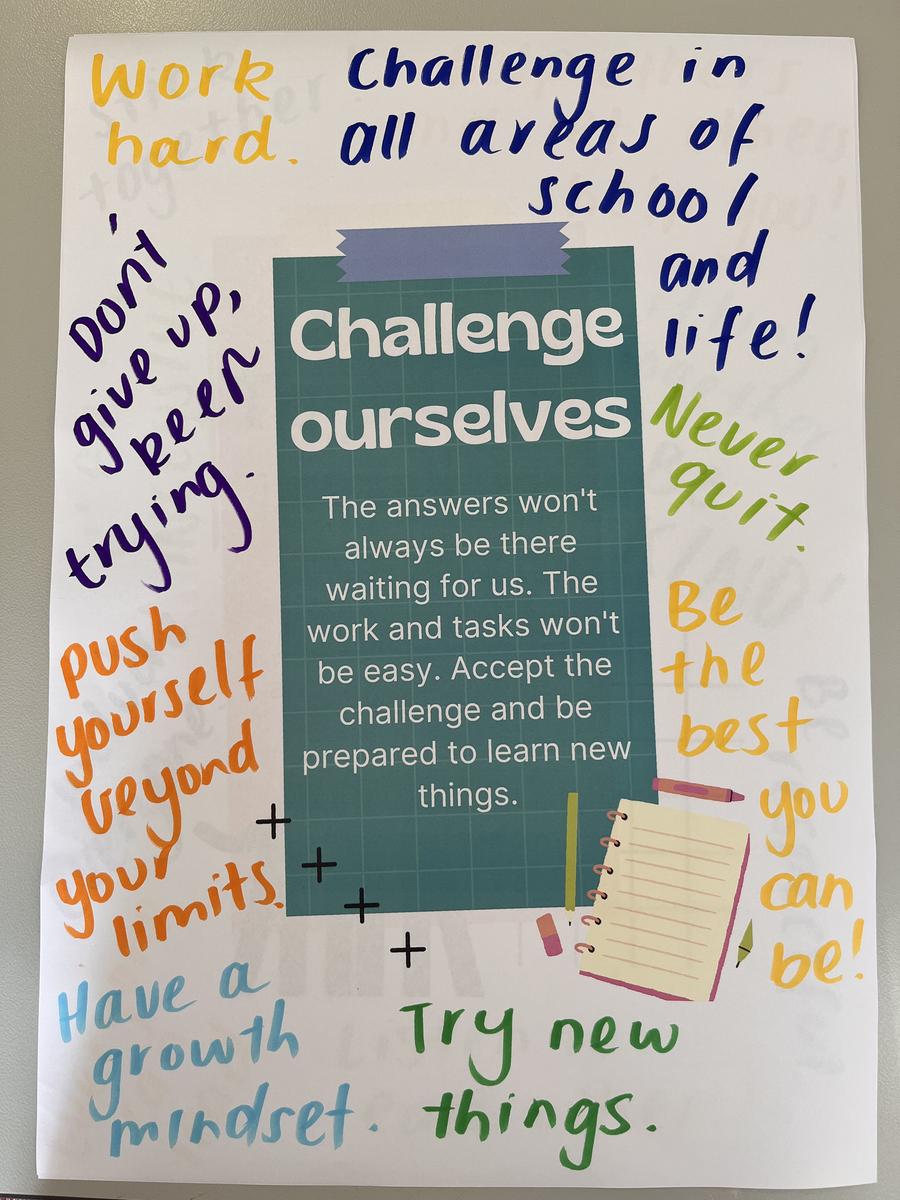 Work
hard.
Challenge in
all areas of
school
and
life!
Don't
give up,
keep
trying.
Challenge
ourselves
The answers won't
always be there
waiting for us. The
work and tasks won't
be easy. Accept the
challenge and be
prepared to learn new
things.
Never
quit.
push
yourself
beyond
your
limits.
Be
the
best
you
can
be!
Have a
growth
mindset.
Try new
things.